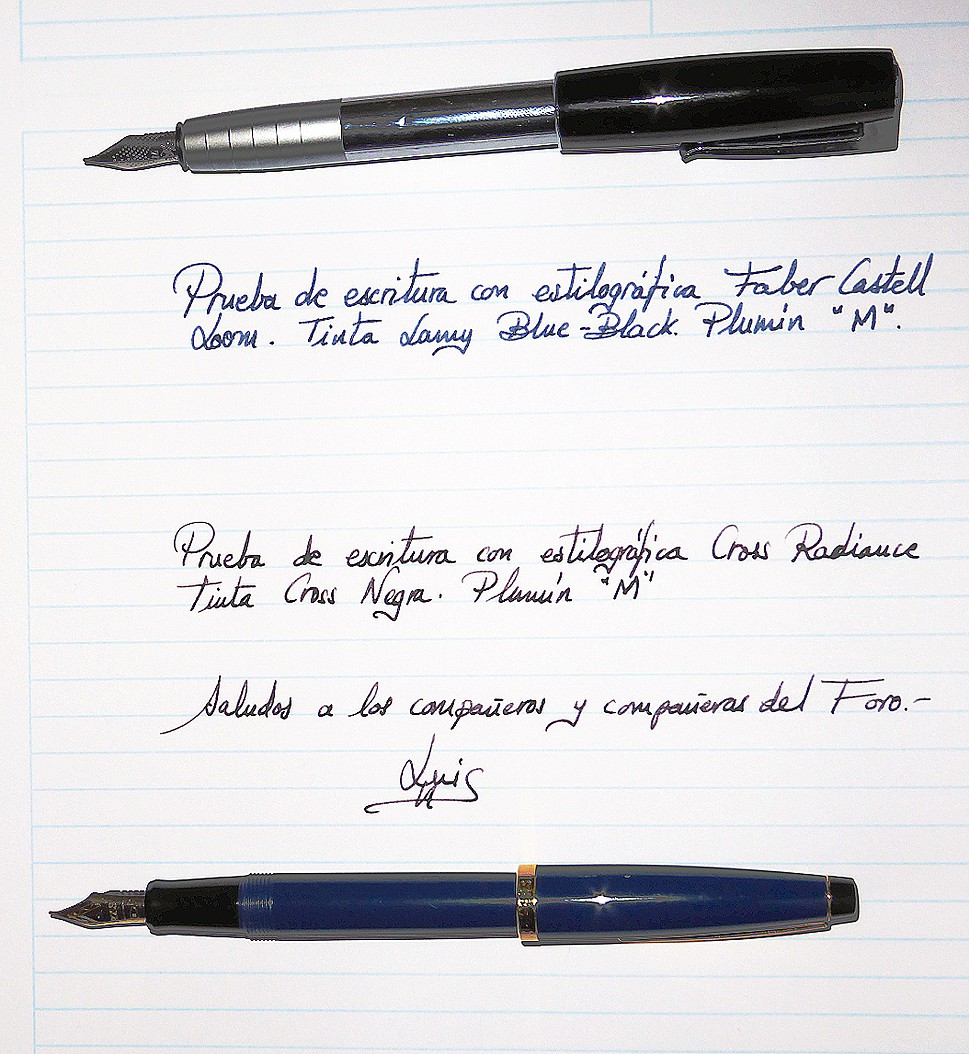 Prueba de escritura con estilográfica Faber Castell
Loom. Tinta Lamy Blue-Black. Plumín "M".
Prueba de escritura con estilográfica Cross Radiance
Tinta Cross Negra. Plumín "M"
Saludos a los compañeros y compañeras del Foro.-
Luis